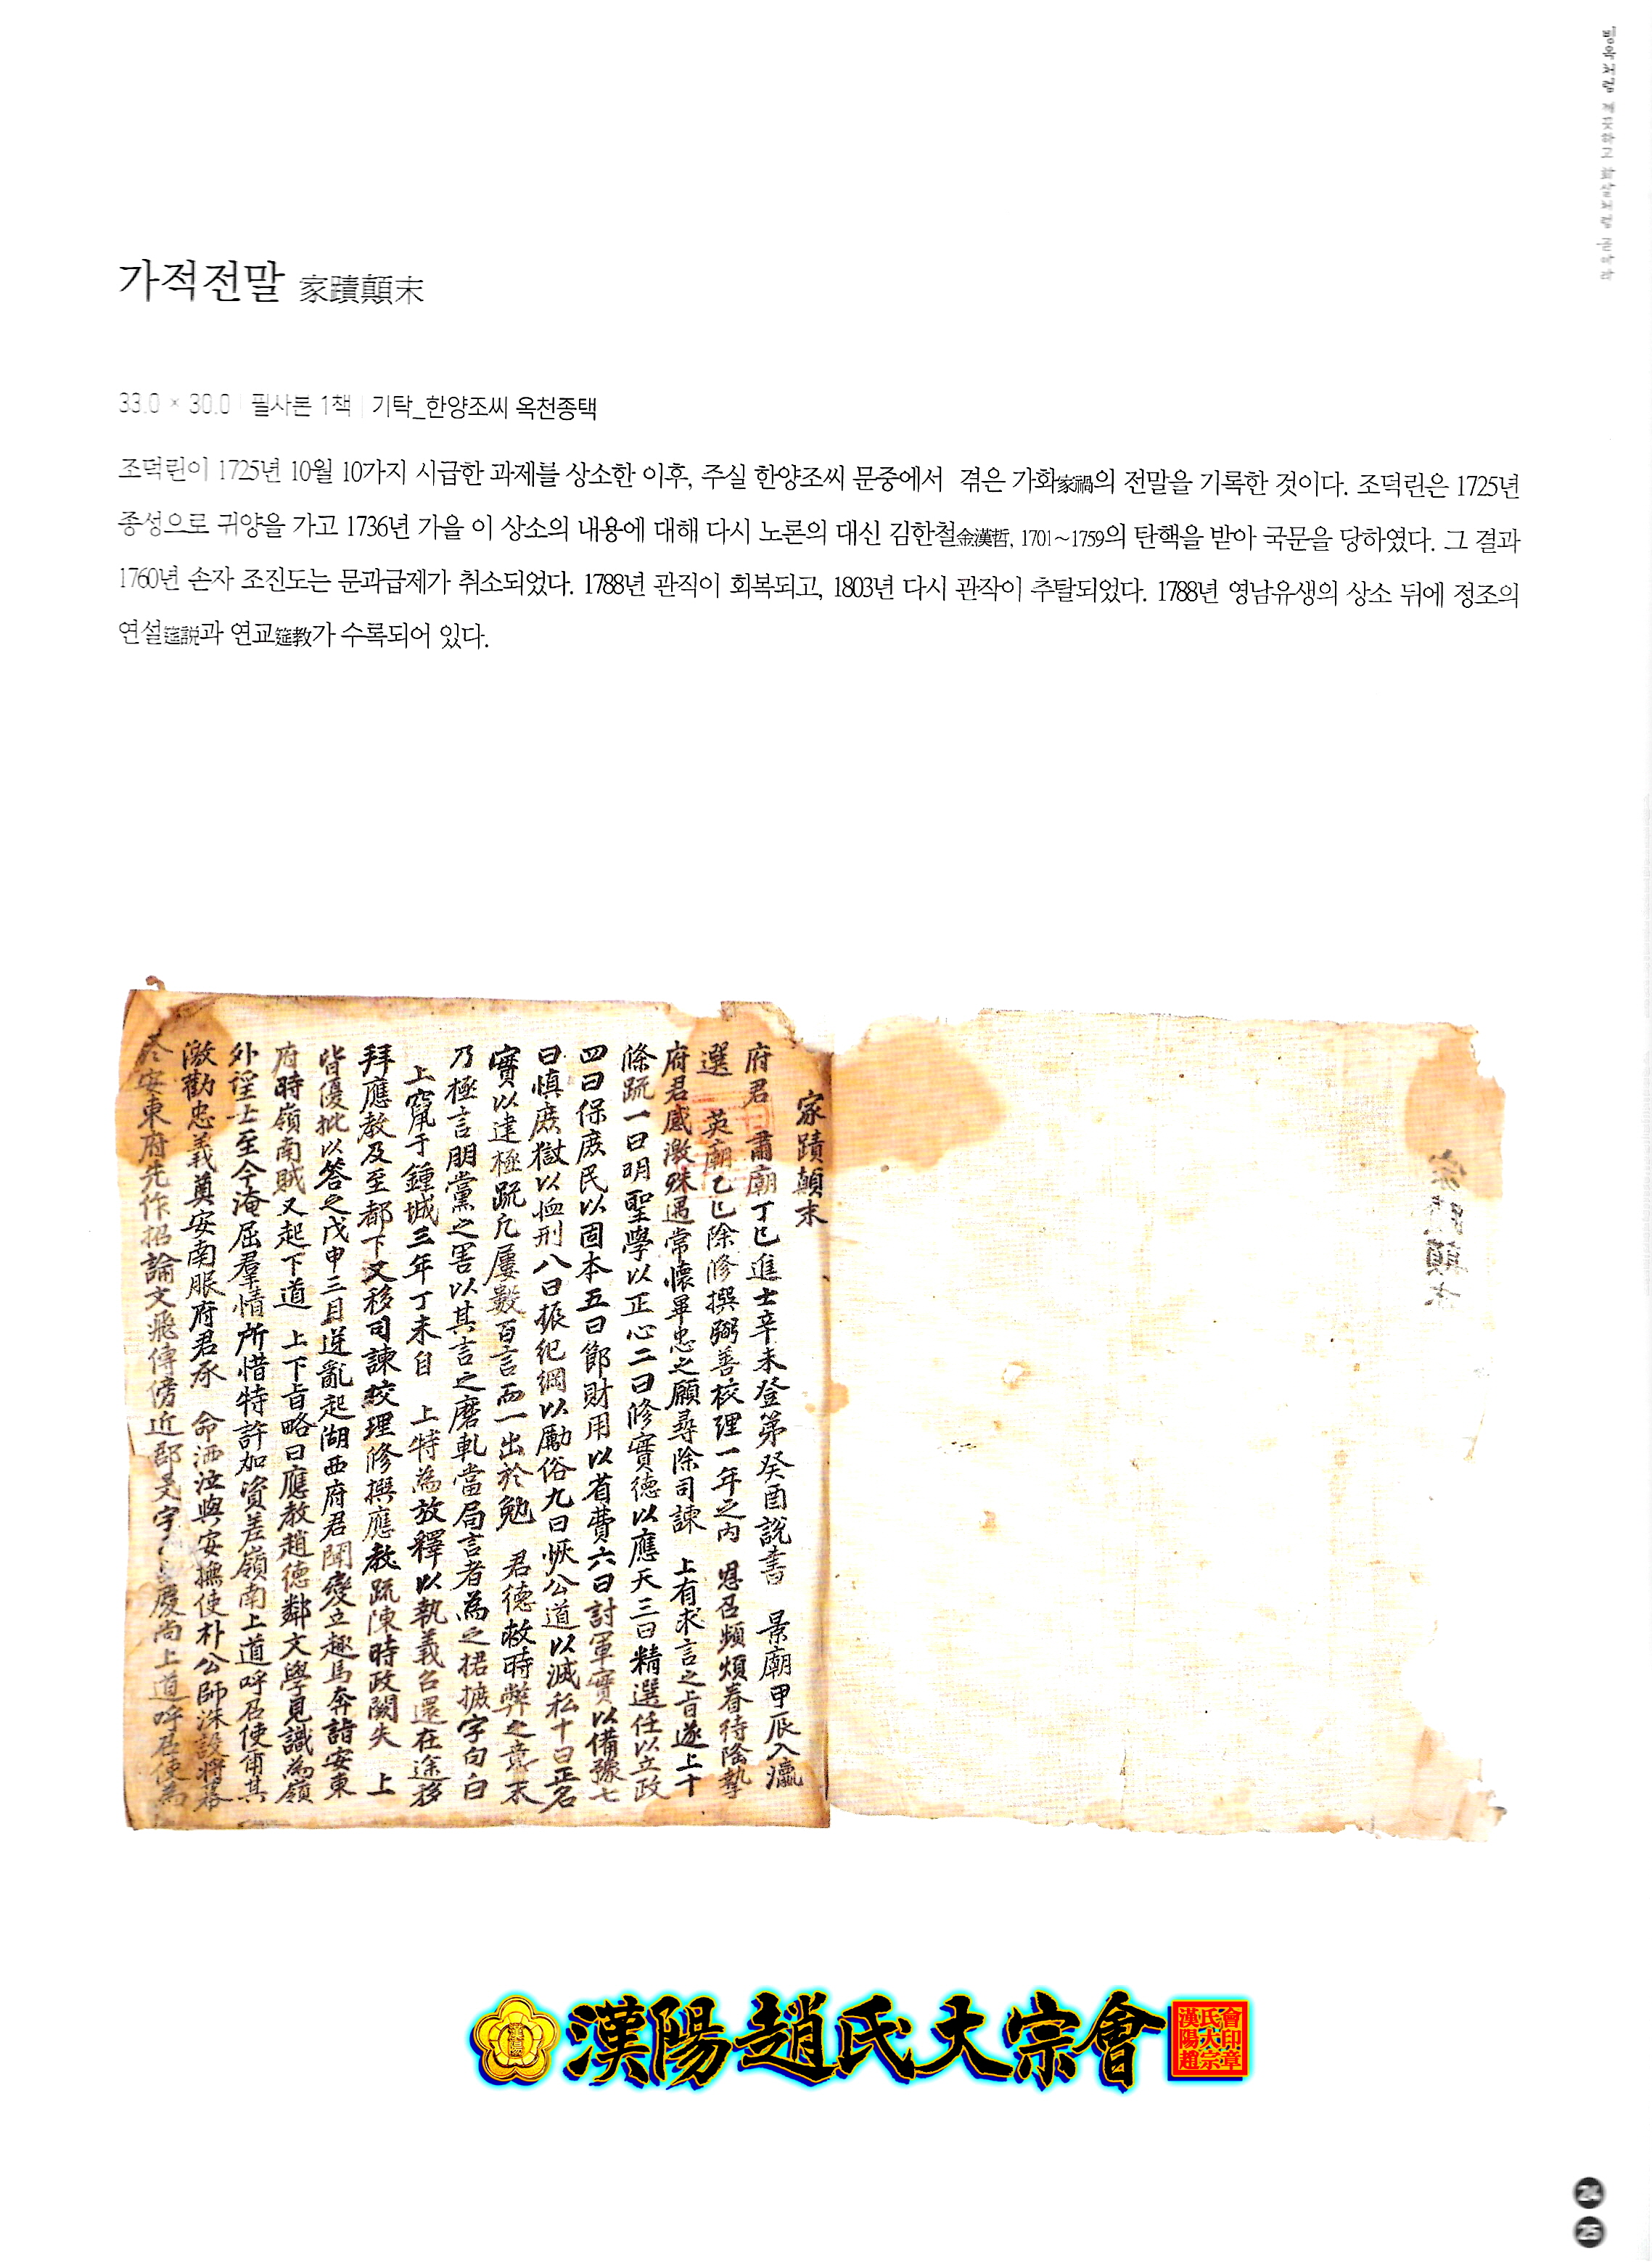 빙옥처럼 깨끗하고 화살처럼 곧아라
가적전말 家蹟顛末
33.0 × 30.0 | 필사본 1책 | 기탁_한양조씨 옥천종택
조덕린이 1725년 10월 10가지 시급한 과제를 상소한 이후, 주실 한양조씨 문중에서 겪은 가화家禍의 전말을 기록한 것이다. 조덕린은 1725년
종성으로 귀양을 가고 1736년 가을 이 상소의 내용에 대해 다시 노론의 대신 김한철金漢哲, 1701~1759의 탄핵을 받아 국문을 당하였다. 그 결과
1760년 손자 조진도는 문과급제가 취소되었다. 1788년 관직이 회복되고, 1803년 다시 관작이 추탈되었다. 1788년 영남유생의 상소 뒤에 정조의
연설筵說과 연교筵敎가 수록되어 있다.
家蹟顛末
家蹟顛末
府君 肅廟丁巳進士辛未登第癸酉說書 景廟甲辰入瀛
選 英廟乙巳除修撰弼善校理一年之內 恩召頻煩眷待隆摯
府君感激殊遇常懷畢忠之願尋除司諫 上有求言之旨遂上十
條疏一曰明聖學以正心二曰修實德以應天三曰精選任以立政
四曰保庶民以固本五曰節財用以省費六曰討軍實以備豫七
曰慎庶獄以恤刑八曰振紀綱以勵俗九曰恢公道以滅私十曰正名
實以建極疏凡屢數百言而一出於勉 君德救時弊之意末
乃極言朋黨之害以其言之磨軋當局言者為之捃摭字句白
上竄于鍾城三年丁未自 上特為放釋以執義召還在途移
拜應教及至都下又移司諫校理修撰應教疏陳時政闕失 上
皆優批以答之戊申三月逆亂起湖西府君聞變立趣馬奔詣安東
府時嶺南賊又起下道 上下旨略曰應教趙德鄰文學見識為嶺
外淫士至今淹屈羣情所惜特許加資差嶺南上道呼召使甭其
激勸忠義奠安南服府君承 命洒泣與安撫使朴公師洙設將
安東府先作招諭文飛傳傍近郡 慶尚上道呼召使為
漢陽趙氏大宗會
漢陽趙氏大宗會印章
24
25